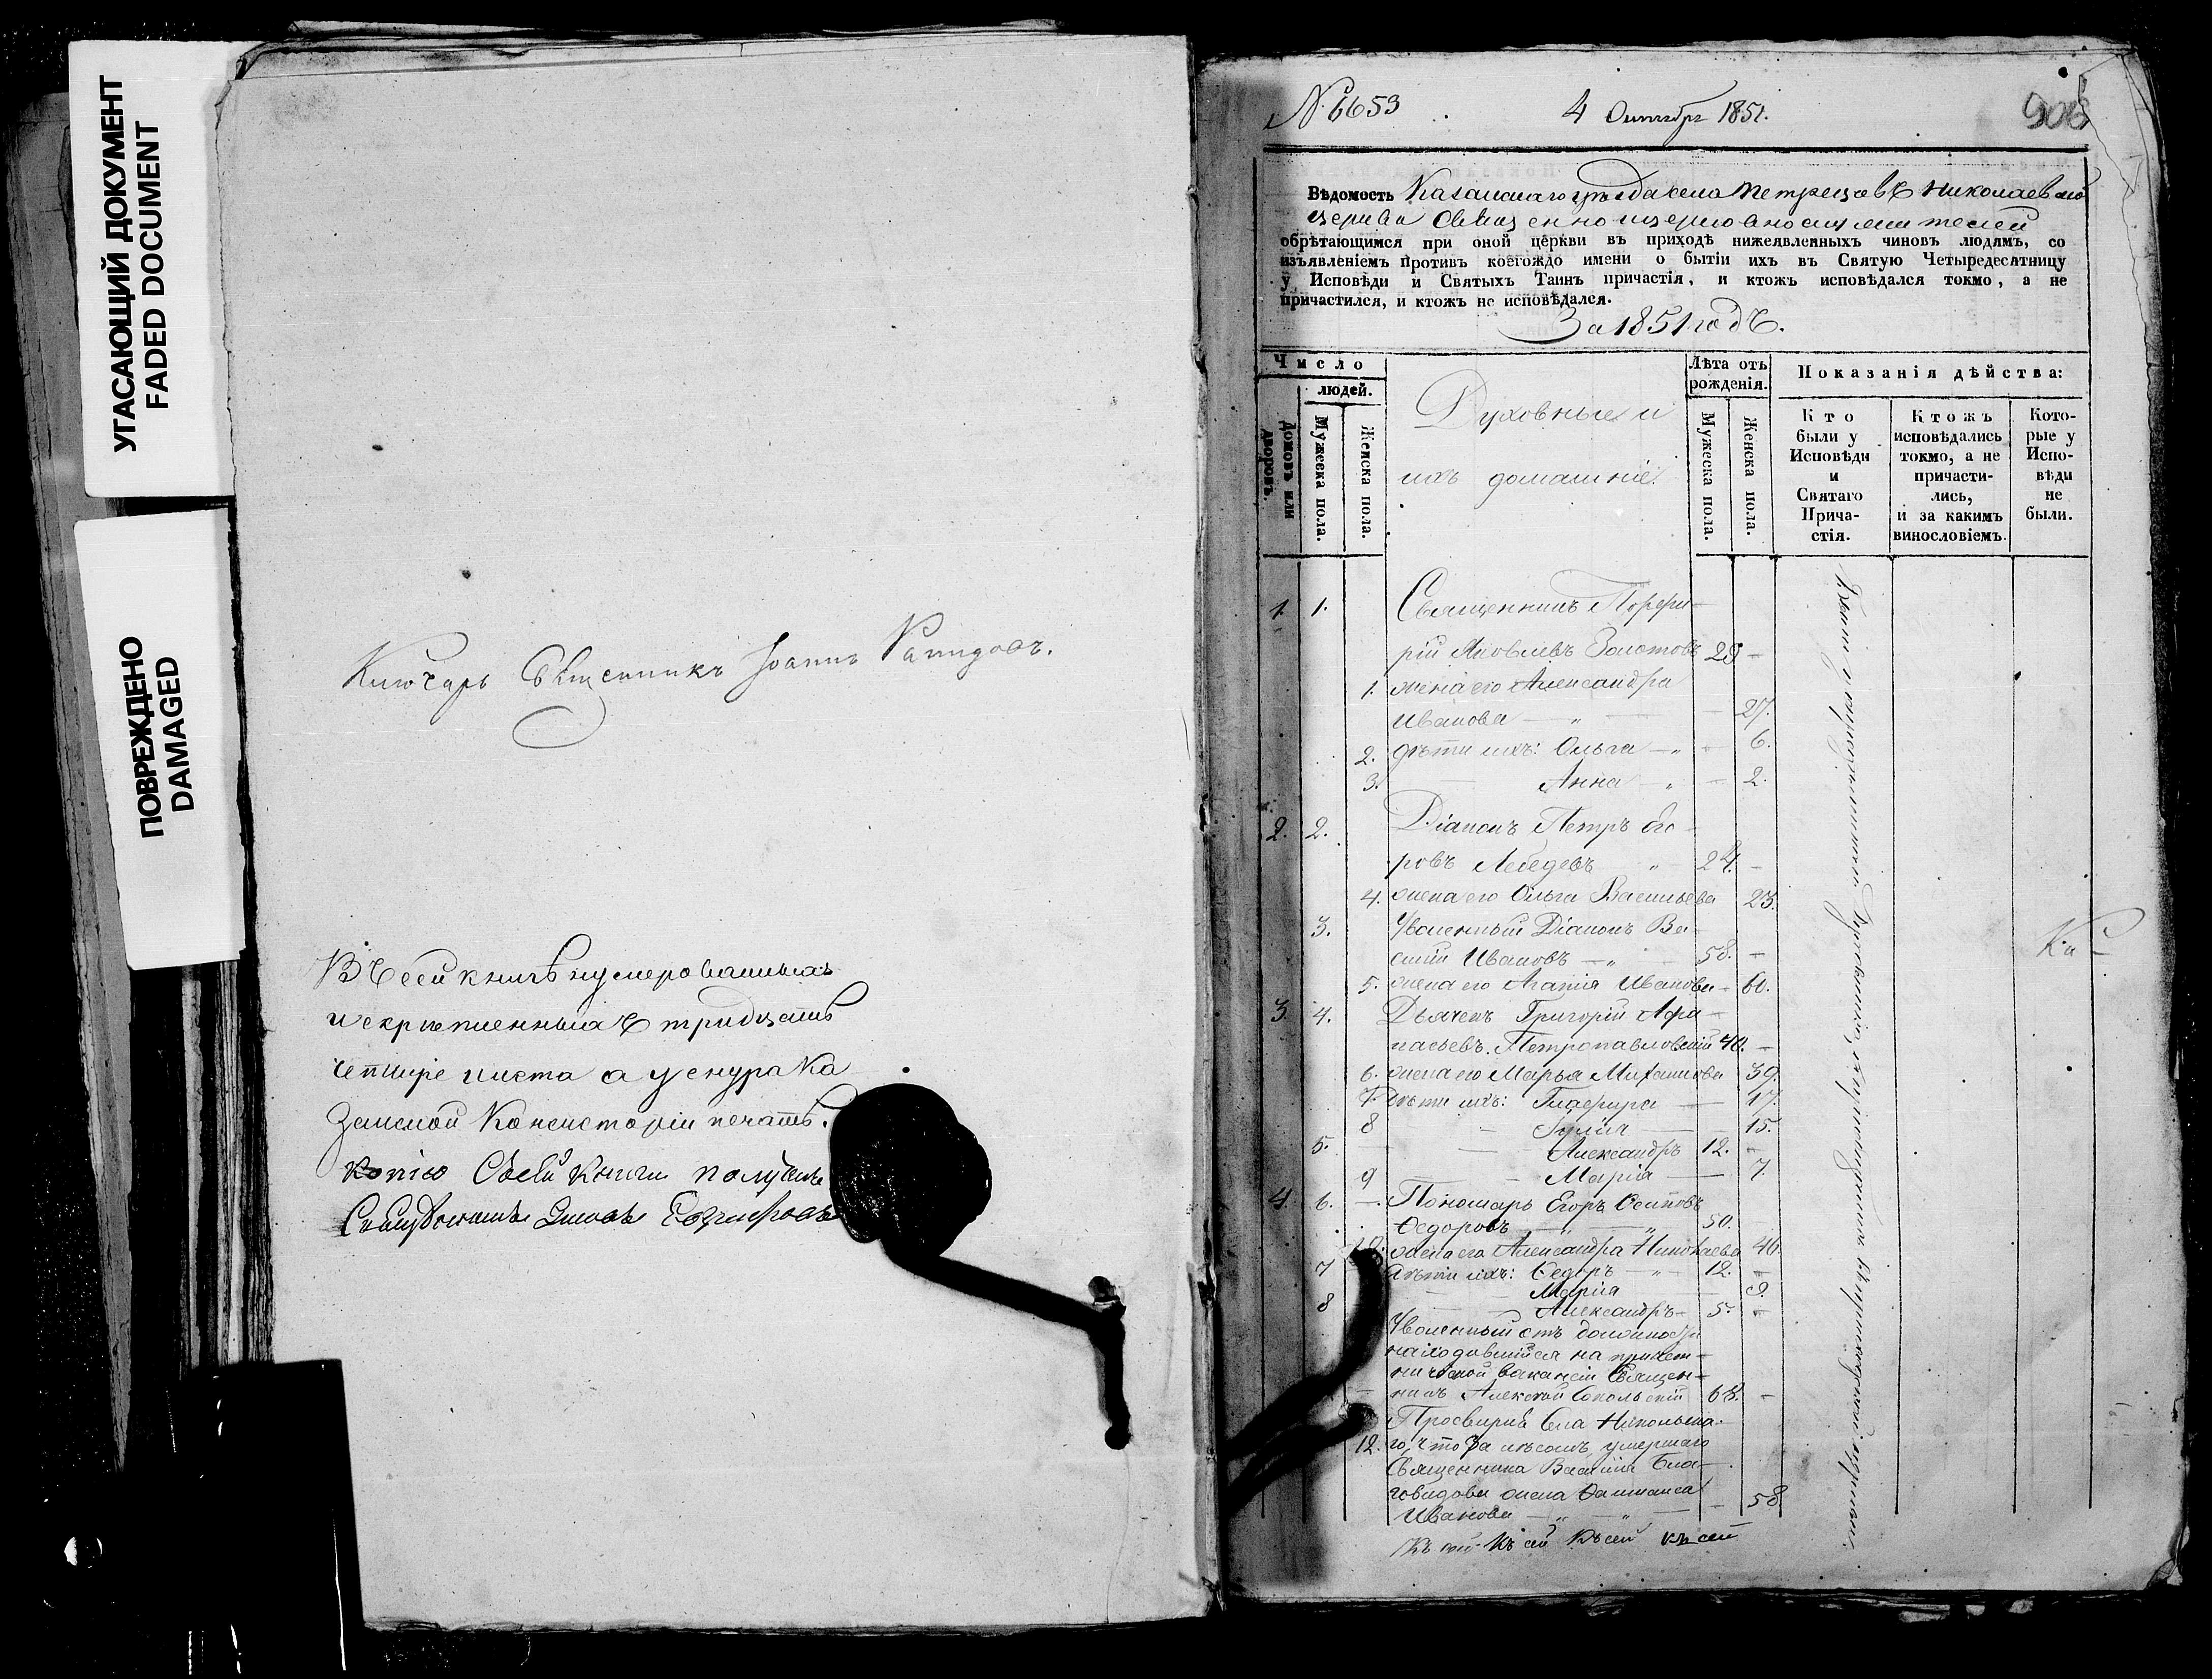 УГАСАЮЩИЙ ДОКУМЕНТ
FADED DOCUMENT
ПОВРЕЖДЕНО
DAMAGED
Ключарь Свщенникъ Іоаннъ
Въ сей книгѣ нумерованныхъ
и скрѣпленныхъ тридцать
четыре листа а у снура Ка
занской Консисторіи печать.
Копію съ сей книги получилъ
№ 6653
4 Октября 1851.
906
Вѣдомость Казанскаго уѣзда села Петрецовъ Николаевской
церкви Священноцерковнослужителей
обрѣтающимся при оной церкви въ приходѣ нижеявленныхъ чиновъ людямъ, со
изъявленіемъ противъ коегождо имени о бытіи ихъ въ Святую Четыредесятницу
у Исповѣди и Святыхъ Таинъ причастія, и ктожъ исповѣдался токмо, а не
причастился, и ктожъ не исповѣдался.
За 1851 годъ.
Число
людей.
Домовъ или дворовъ.
Мужеска пола.
Женска пола.
Духовные и
ихъ домашніе.
Лѣта отъ
рожденія.
Мужеска пола.
Женска пола.
Показанія дѣйства:
Кто
были у
Исповѣди
и
Святаго
Прича-
стія.
Ктожъ
исповѣдались
токмо, а не
причасти-
лись,
и за какимъ
винословіемъ.
Кото-
рые у
Испо-
вѣди
не
были.
1. 1. Священникъ Порфи-
рій Яковлевъ Золотовъ 29 -
1. жена его Александра
Иванова — „ — 27.
2. дѣти ихъ: Ольга — „ - 6.
3. Анна - „ - 2.
2. 2. Діаконъ Петръ
ровъ Лебедевъ „ 24. -
4. жена его Ольга Васильева 23.
3. Уволенный Діаконъ Ва-
силій Ивановъ — „ - 58. -
5. жена его Агапія Иванова - 60.
3. 4. Дьячекъ Григорій Афа-
насьевъ Петропавловскій 40. -
6. жена его Марья Михаилова 39.
7. Дѣти ихъ: Глафира — 17.
8 Юлія — 15.
5. Александръ 12. -
9 Марія — 7
4. 6. Пономарь Егоръ Осиповъ
Ѳедоровъ — „ 50.
10. жена его Александра Николаева 46.
7 Дѣти ихъ: Ѳедоръ — „ — 12. -
Марія 9.
8 Александръ - 5. -
Уволенный отъ должности
находившійся на причет-
нической вакансіи Священ-
никъ Алексѣй Сокольскій 68. -
Просвирня села Никольска-
12. го, что за лѣсомъ, умершаго
Священника Василія Бла-
говидова жена
Иванова — „ — „ - 58
Къ сей Къ сей Къ сей къ сей